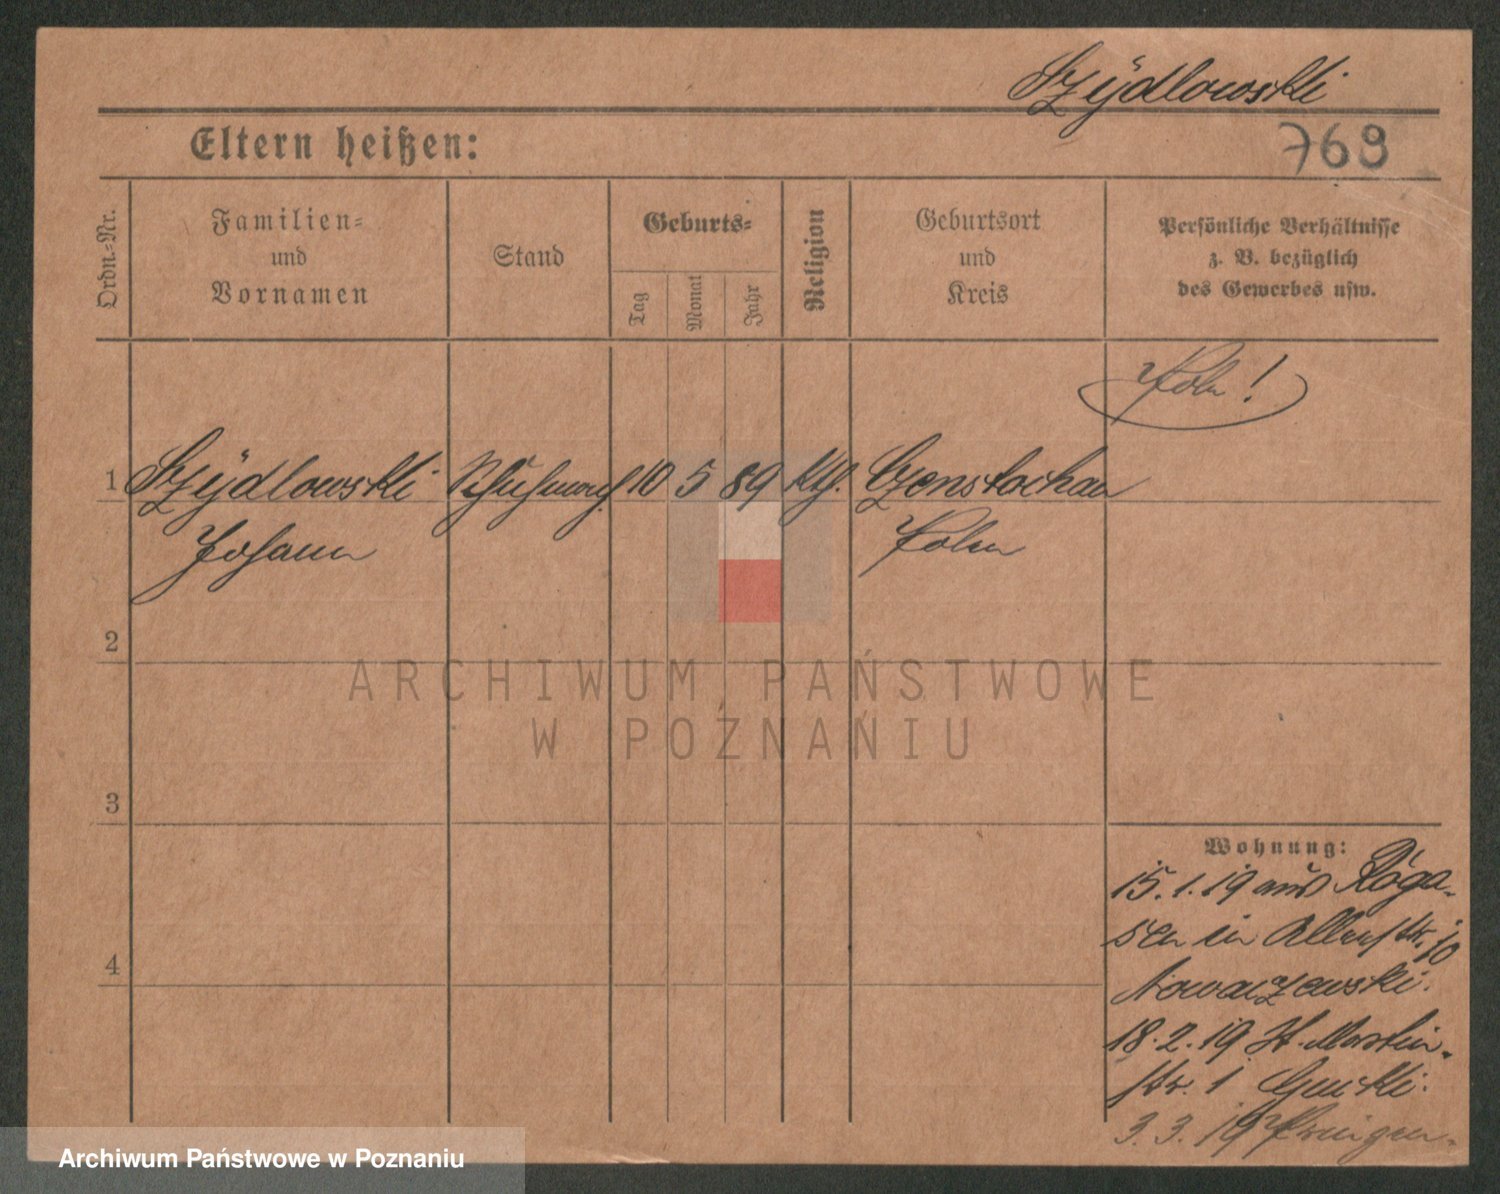 Szÿdlowski
Eltern heißen:
769
Ordn.-Nr.
Familien-
und
Vornamen
Stand
Geburts-
Tag
Monat
Jahr
Religion
Geburtsort
und
Kreis
Persönliche Verhältnisse
z. B. bezüglich
des Gewerbes usw.
Pole!
1 Szÿdlowski Schuhmach. 10 5 89 kth. Czenstochau
Johann Polen
2
ARCHIWUM PAŃSTWOWE
W POZNANIU
3
Wohnung:
15.1.19 aus Roga-
sen in 10
Nowaczewski.
4
18.2.19 St. Martin-
str. 1
3.3.19
Archiwum Państwowe w Poznaniu